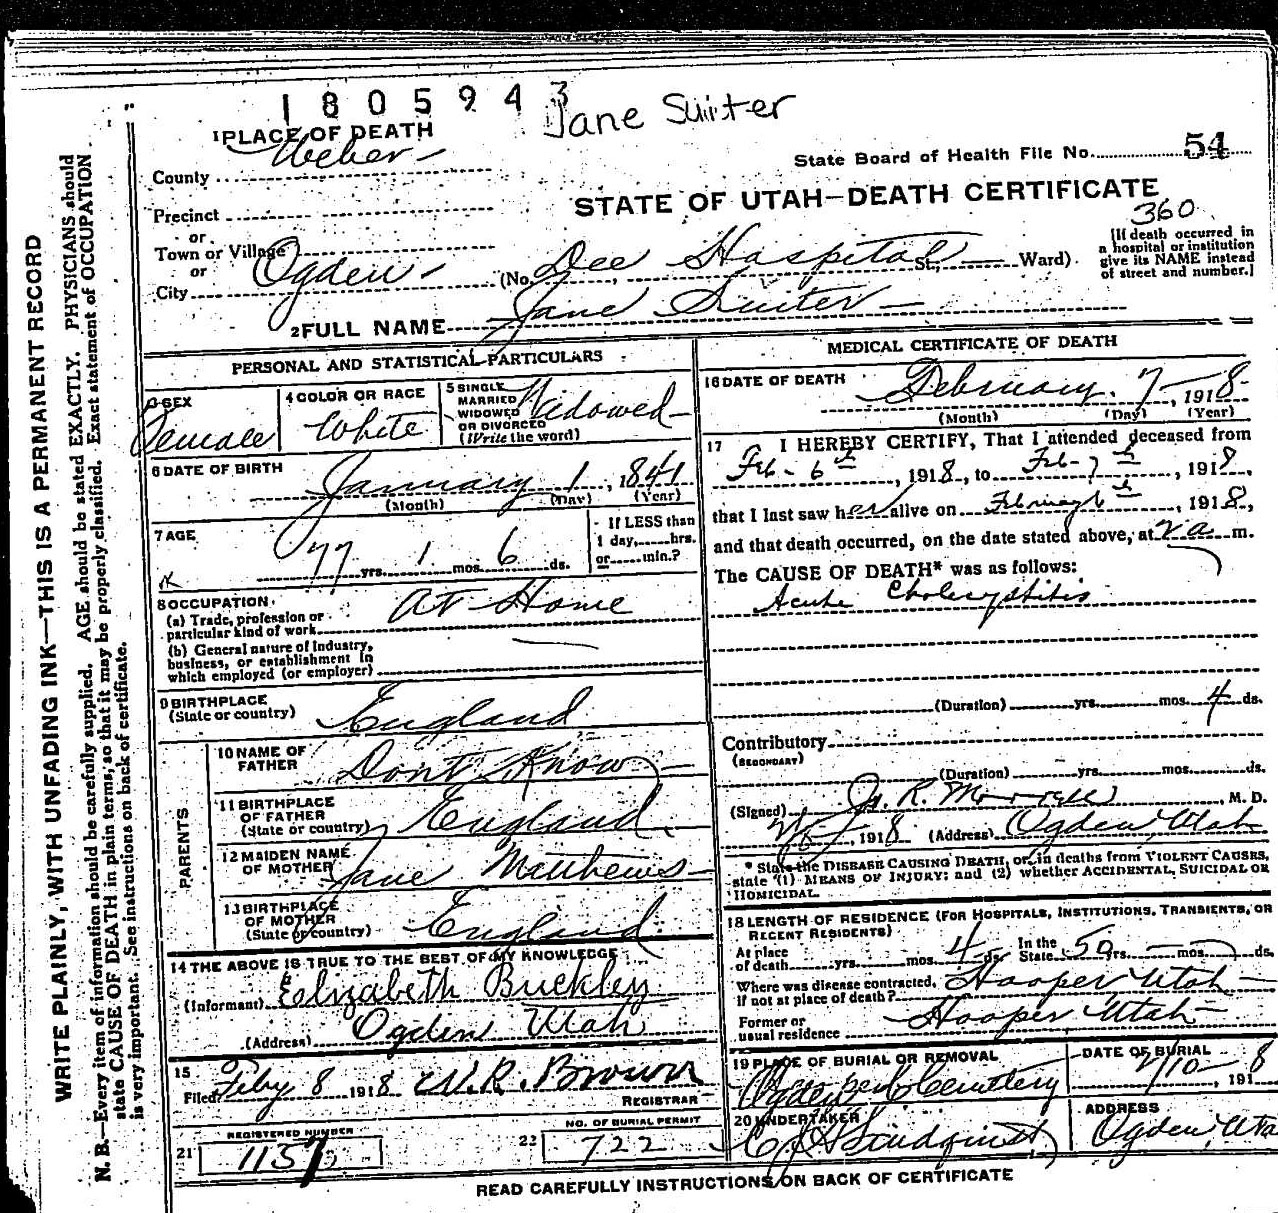 1805943
Jane Suiter
1 PLACE OF DEATH
County Weber
State Board of Health File No. 54
STATE OF UTAH—DEATH CERTIFICATE
360
Precinct
or
Town or Village
or
City Ogden
(No. Dee Hospital St., Ward)
[If death occurred in
a hospital or institution
give its NAME instead
of street and number.]
2 FULL NAME Jane Suiter
PERSONAL AND STATISTICAL PARTICULARS
SEX
Female
4 COLOR OR RACE
White
5 SINGLE
MARRIED
WIDOWED
OR DIVORCED
(Write the word)
Widowed
6 DATE OF BIRTH
January 1, 1841
(Month) (Day) (Year)
7 AGE
77 yrs. 1 mos. 6 ds.
If LESS than
1 day, hrs.
or min.?
8 OCCUPATION
(a) Trade, profession or
particular kind of work
At Home
(b) General nature of Industry,
business, or establishment in
which employed (or employer)
9 BIRTHPLACE
(State or country) England
PARENTS
10 NAME OF
FATHER Dont Know
11 BIRTHPLACE
OF FATHER
(State or country) England
12 MAIDEN NAME
OF MOTHER Jane Matthews
13 BIRTHPLACE
OF MOTHER
(State or country) England
14 THE ABOVE IS TRUE TO THE BEST OF MY KNOWLEDGE
(Informant) Elizabeth Buckley
(Address) Ogden Utah
15
Filed Feby 8 1918 W.R. Brown
REGISTRAR
REGISTERED NUMBER
21
NO. OF BURIAL PERMIT
22 722
MEDICAL CERTIFICATE OF DEATH
16 DATE OF DEATH February 7, 1918
(Month) (Day) (Year)
17 I HEREBY CERTIFY, That I attended deceased from
Feb- 6th, 1918, to Feb-7th, 1918,
that I last saw her alive on February 6th, 1918,
and that death occurred, on the date stated above, at 2 a m.
The CAUSE OF DEATH* was as follows:
Acute Cholecystitis
(Duration) yrs. mos. 4 ds.
Contributory
(SECONDARY)
(Duration) yrs. mos. ds.
(Signed) R. Morrell, M. D.
1918 (Address) Ogden, Utah
* State the DISEASE CAUSING DEATH, or, in deaths from VIOLENT CAUSES,
state (1) MEANS OF INJURY; and (2) whether ACCIDENTAL, SUICIDAL OR
HOMICIDAL.
18 LENGTH OF RESIDENCE (FOR HOSPITALS, INSTITUTIONS, TRANSIENTS, OR
RECENT RESIDENTS)
At place
of death yrs. mos. 4 ds.
In the
State 50 yrs. mos. ds.
Where was disease contracted,
if not at place of death? Hooper Utah
Former or
usual residence Hooper Utah
19 PLACE OF BURIAL OR REMOVAL
Cemetery
DATE OF BURIAL
2/10, 1918
20 UNDERTAKER
ADDRESS
Ogden, Utah
READ CAREFULLY INSTRUCTIONS ON BACK OF CERTIFICATE
WRITE PLAINLY, WITH UNFADING INK—THIS IS A PERMANENT RECORD
N. B.—Every item of information should be carefully supplied. AGE should be stated EXACTLY. PHYSICIANS should
state CAUSE OF DEATH in plain terms, so that it may be properly classified. Exact statement of OCCUPATION
is very important. See instructions on back of certificate.